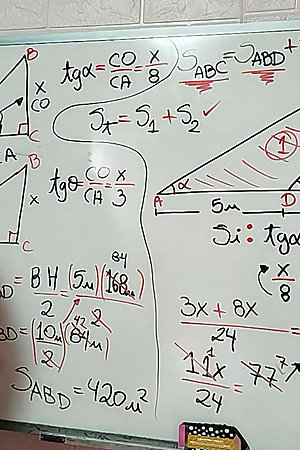 B
x
CO
C
A
B
x
C
tgα = CO/CA = x/8
S_ABC = S_ABD +
S_t = S_1 + S_2 ✓
tgθ = CO/CA = x/3
1
A
α
D
5m
Si: tgα
x/8
BD = BH/2 = (5m)(168m)/2
84
BD = (10m)(84m)/2
42
S_ABD = 420m²
3x + 8x
24
11x/24 = 77
1
7